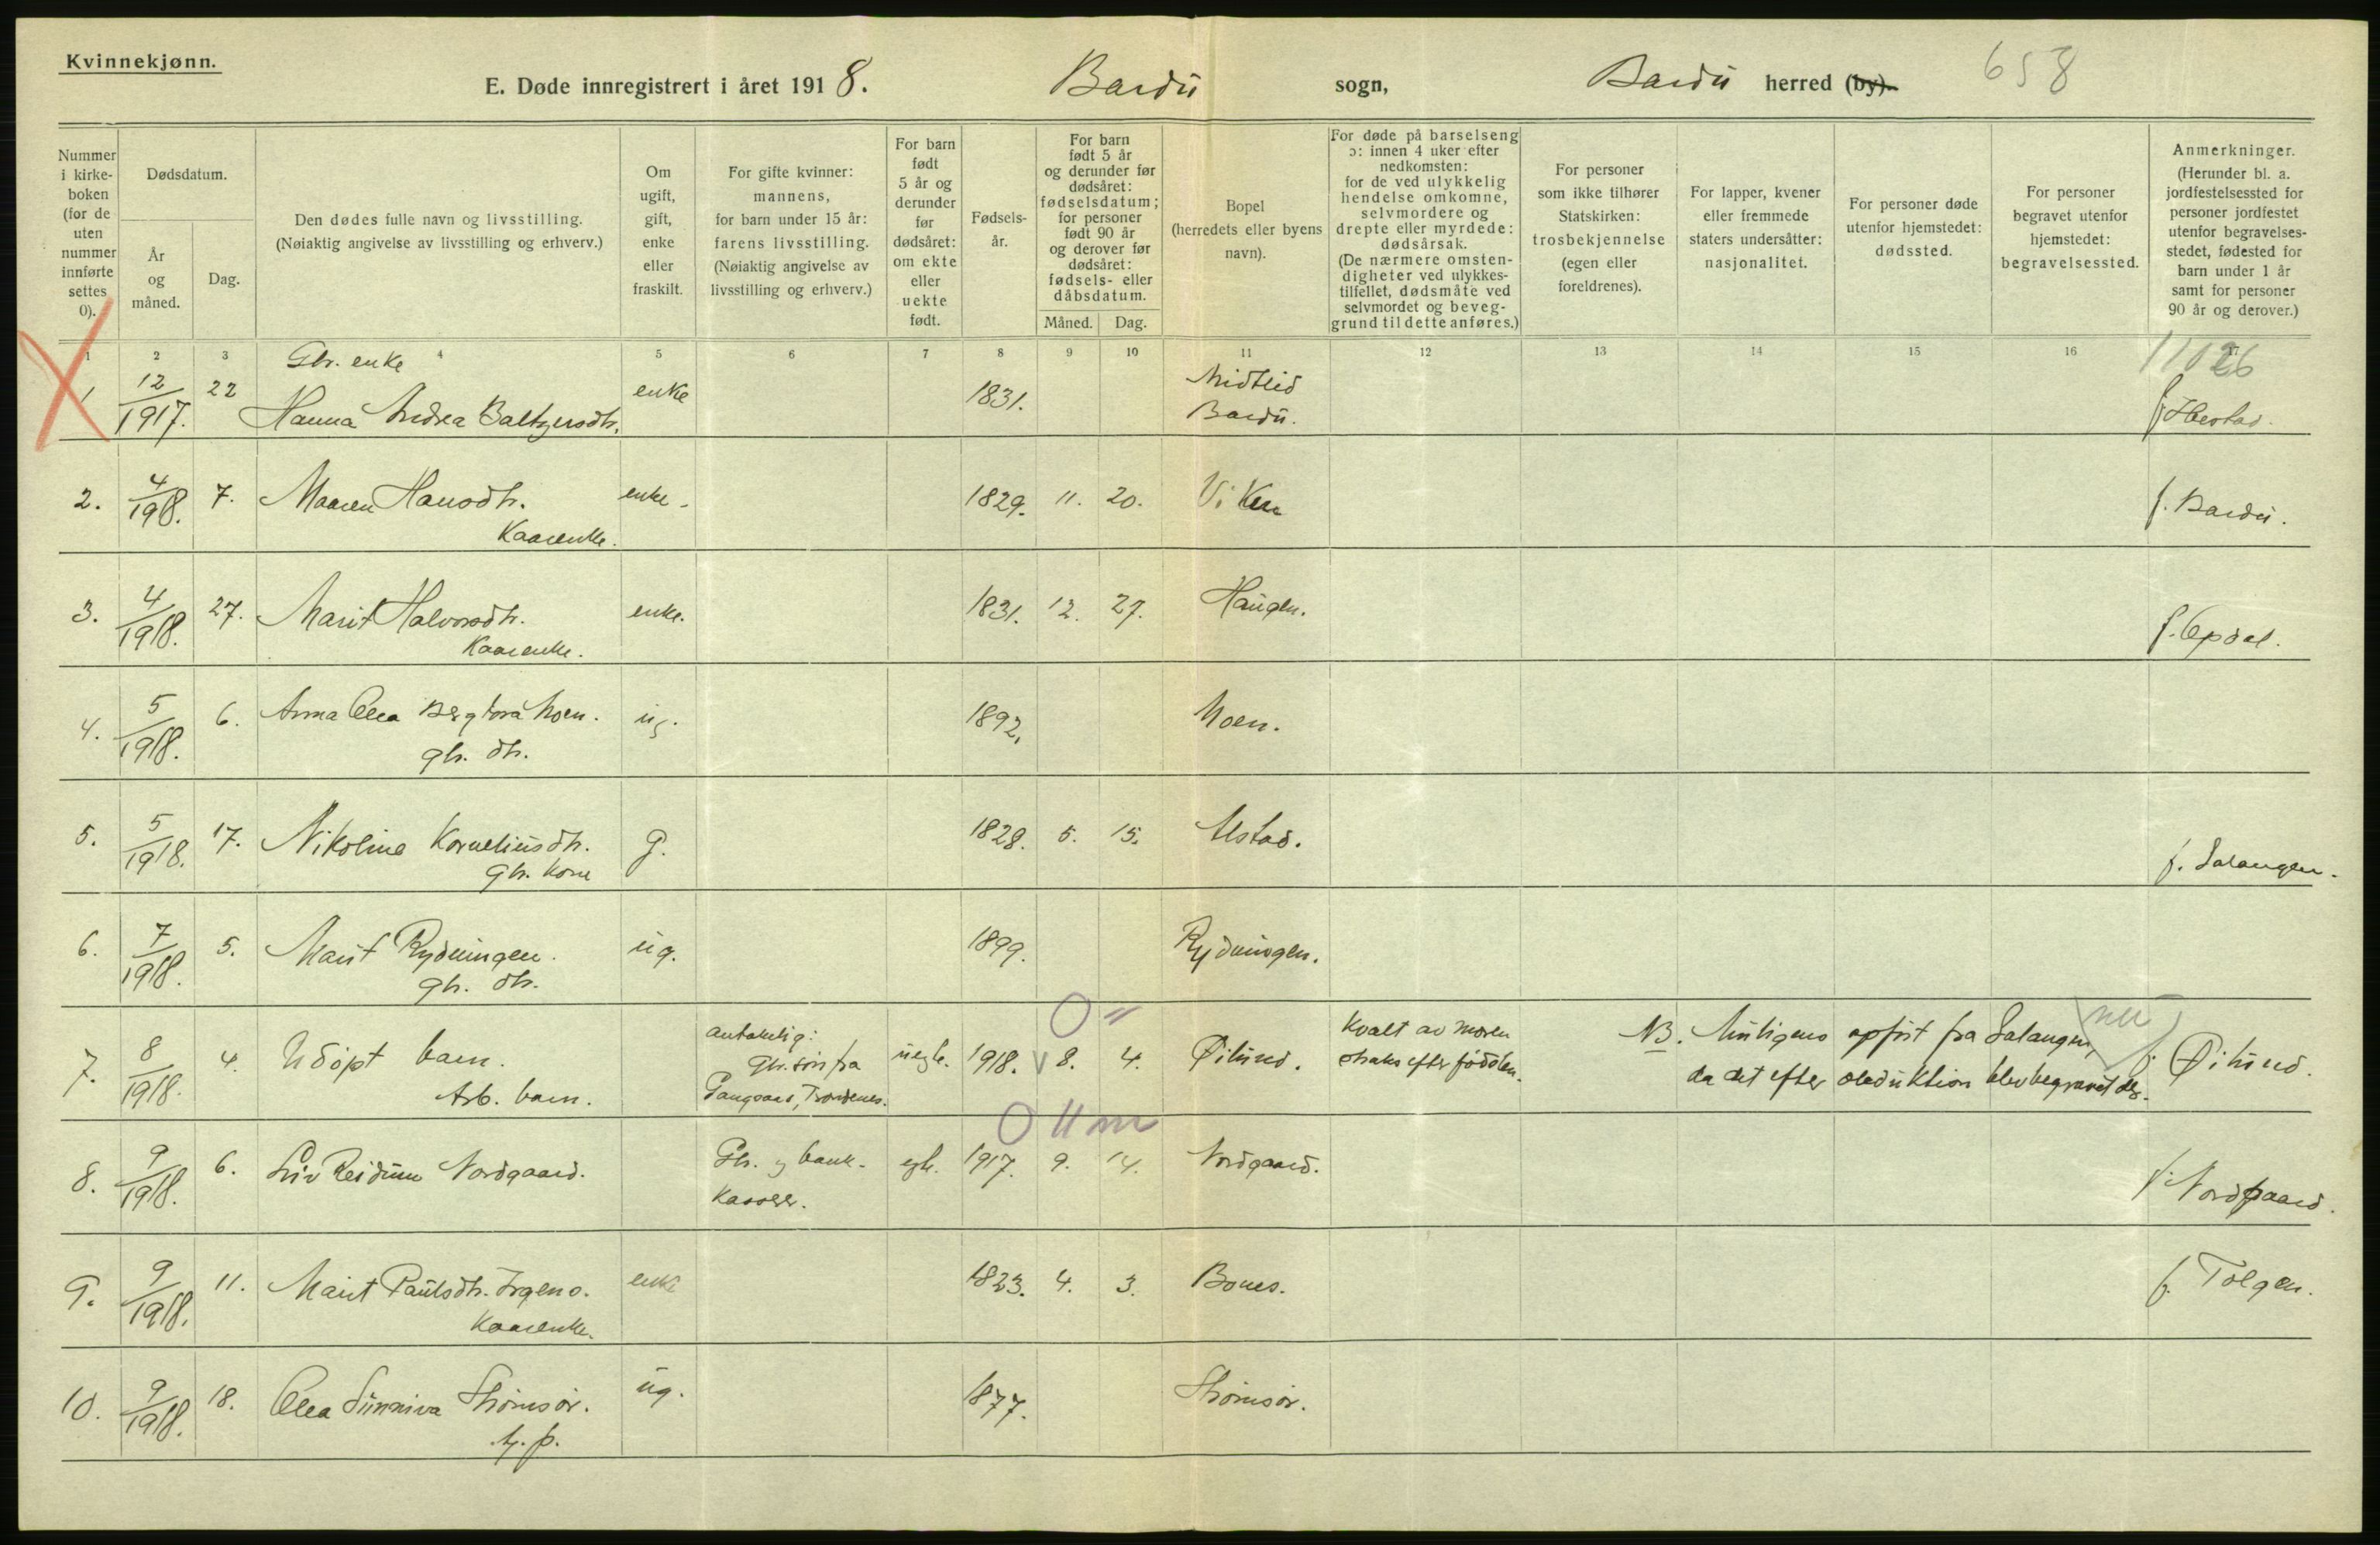 Kvinnekjønn.
E. Døde innregistrert i året 1918. Bardu sogn, Bardu herred (by). 658
Nummer i kirkeboken (for de uten nummer innførte settes 0).
Dødsdatum.
År og måned.
Dag.
Den dødes fulle navn og livsstilling. (Nøiaktig angivelse av livsstilling og erhverv.)
Om ugift, gift, enke eller fraskilt.
For gifte kvinner: mannens, for barn under 15 år: farens livsstilling. (Nøiaktig angivelse av livsstilling og erhverv.)
For barn født 5 år og derunder før dødsåret: om ekte eller uekte født.
Fødselsår.
For barn født 5 år og derunder før dødsåret: fødselsdatum; for personer født 90 år og derover før dødsåret: fødsels- eller dåbsdatum.
Måned. Dag.
Bopel (herredets eller byens navn).
For døde på barselseng ɔ: innen 4 uker efter nedkomsten: for de ved ulykkelig hendelse omkomne, selvmordere og drepte eller myrdede: dødsårsak. (De nærmere omstendigheter ved ulykkestilfellet, dødsmåte ved selvmordet og beveggrund til dette anføres.)
For personer som ikke tilhører Statskirken: trosbekjennelse (egen eller foreldrenes).
For lapper, kvener eller fremmede staters undersåtter: nasjonalitet.
For personer døde utenfor hjemstedet: dødssted.
For personer begravet utenfor hjemstedet: begravelsessted.
Anmerkninger. (Herunder bl. a. jordfestelsessted for personer jordfestet utenfor begravelsesstedet, fødested for barn under 1 år samt for personer 90 år og derover.)
1 2 3 4 5 6 7 8 9 10 11 12 13 14 15 16 17
1 12/1917. 22 Gbr. enke enke 1831. Midtlid
Hanna Andrea Baltzersdtr. Bardu. f. Ibestad.
2. 4/1918. 7. Maaren Hansdtr. enke. 1829. 11. 20. Viken f. Bardu.
Kaarenke.
3. 4/1918. 27. Marit Halvorsdtr. enke. 1831. 12. 27. Haugen. f. Opdal.
Kaarenke.
4. 5/1918. 6. Anna Olea Bergtora Moen. ug. 1892. Moen.
gbr. dtr.
5. 5/1918. 17. Nikoline Korneliusdtr. g. 1828. 5. 15. Alstad. f. Salangen.
Gbr. kone
6. 7/1918. 5. Marit Rydningen. ug. 1899. Rydningen.
gbr. dtr.
7. 8/1918. 4. Udøpt barn. antakelig: uegte. 1918. 8. 4. Øilund. Kvalt av moren NB. Muligens opført fra Salangen, f. Øilund.
Arb. barn. Gbr. søn fra straks efter fødslen. da det efter obduktion blev begravet der.
Trondenes.
8. 9/1918. 6. Liv Reidun Nordgaard. Gbr. og bank- egte. 1917. 9. 14. Nordgaard. f. Nordgaard.
kasser.
9. 9/1918. 11. Marit Paulsdtr. Irgens. enke 1823. 4. 3. Bones. f. Tolgen.
Kaarenke.
10. 9/1918. 18. Olea Sunniva Strømsør. ug. 1877. Strømsør.